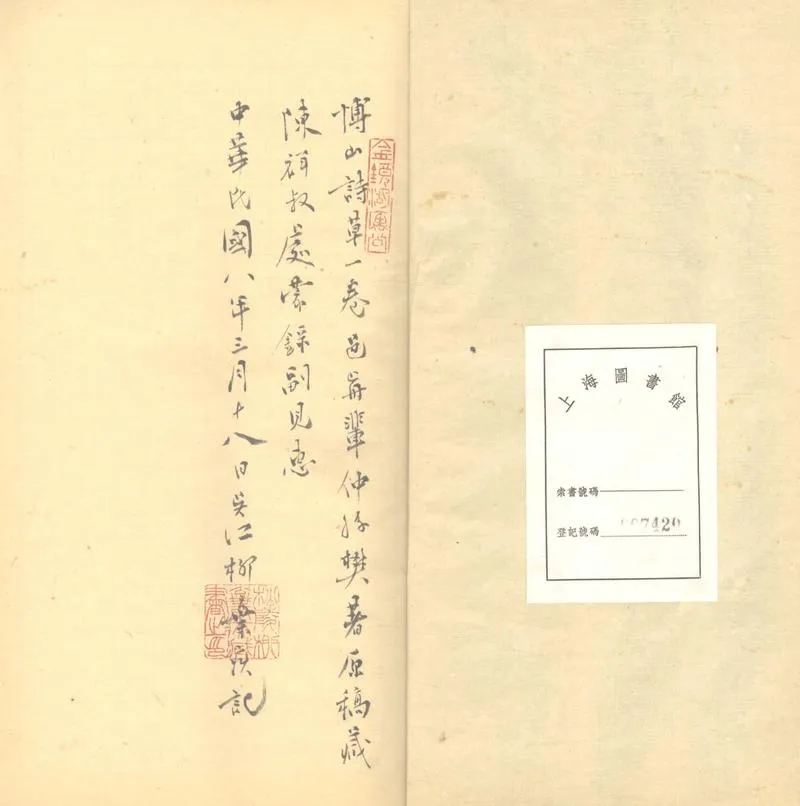 上海圖書館
索書號碼
登記號碼 007420
愽山詩草一卷邑前輩仲孫樊著原稿藏
陳祥叔處蒙錄副見惠
中華民國八年三月十八日吳江柳棄疾記